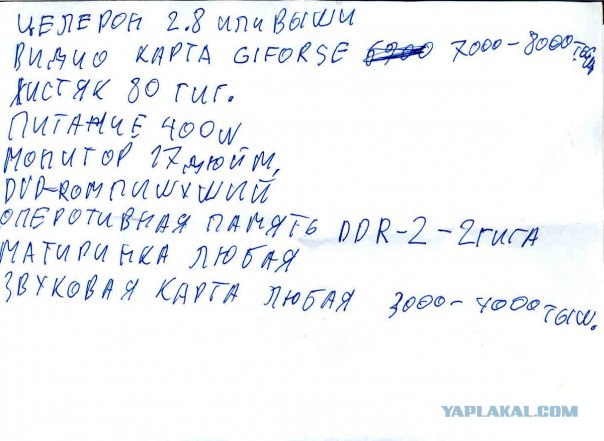 ЦЕЛЕРОН 2.8 ИЛИ ВЫШИ
ВИДИО КАРТА GIFORSE 6200 7000-8000 тыщ
ХИСТЯК 80 ГИГ.
ПИТАНИЕ 400W
МОНИТОР 17 дюйм,
DVD-ROM ПИШУЩИЙ
ОПЕРОТИВНАЯ ПАМЯТЬ DDR-2-2 гига
МАТИРИНКА ЛЮБАЯ
ЗВУКОВАЯ КАРТА ЛЮБАЯ 3000-4000 тыщ.
YAPLAKAL.COM